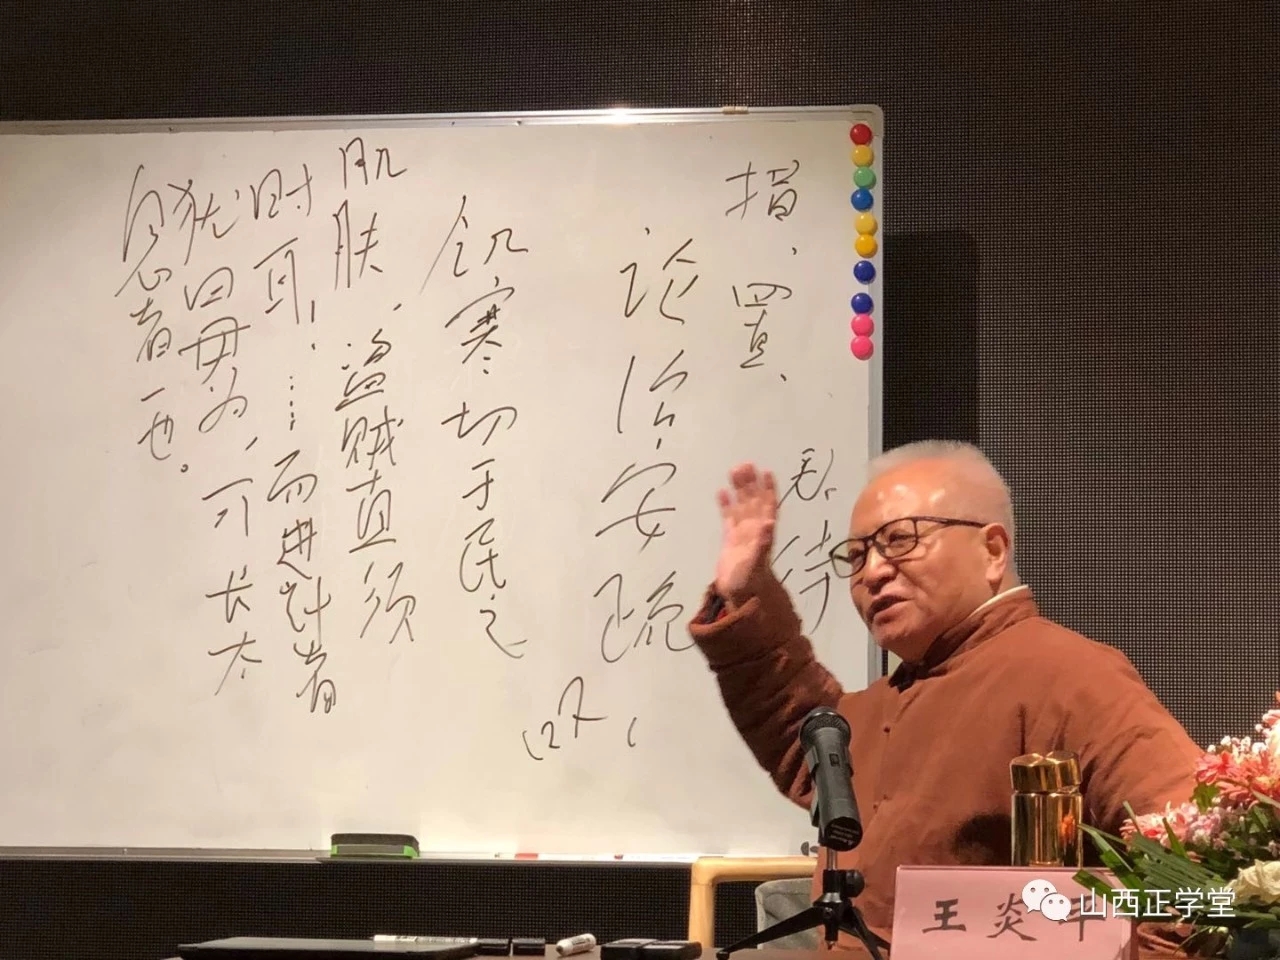 措、置、
私、待
论治安疏
饥寒切于民之
肌肤,盗贼直须
时耳!……而进计者
犹曰毋为,可长太
息者一也。
王炎
山西正学堂